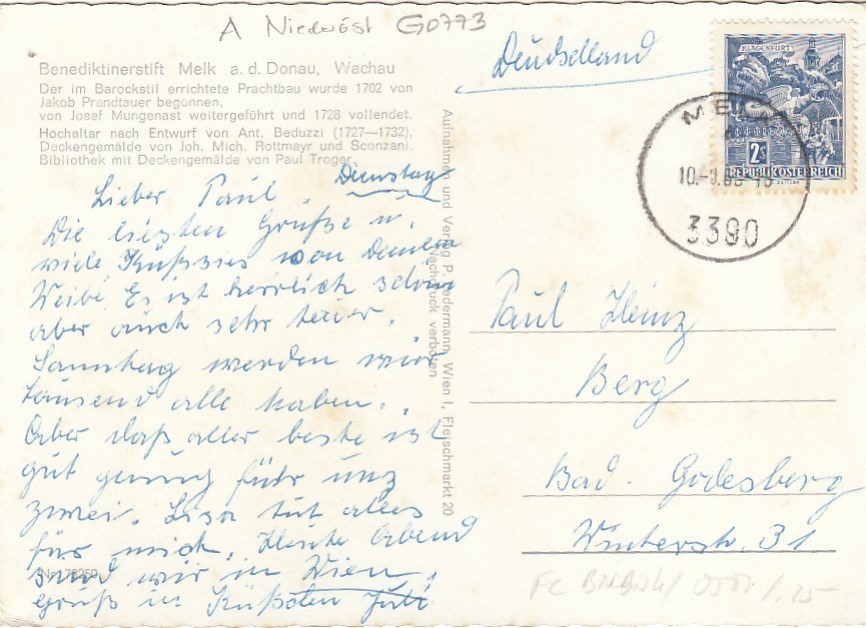 A Niederöst G0773
Benediktinerstift Melk a. d. Donau, Wachau
Der im Barockstil errichtete Prachtbau wurde 1702 von
Jakob Prandtauer begonnen,
von Josef Mungenast weitergeführt und 1728 vollendet.
Hochaltar nach Entwurf von Ant. Beduzzi (1727—1732).
Deckengemälde von Joh. Mich. Rottmayr und Sconzani.
Bibliothek mit Deckengemälde von Paul Troger.
Dienstag
Lieber Paul,
Die liebsten Grüße u.
viele Küßsies von Deinem
Weibe. Es ist herrlich schön
aber auch sehr teuer.
Sonntag werden wir
tausend alle haben.
Aber daß aller beste ist
gut genug für uns
zwei. Lisa tut alles
für mich. Heute Abend
sind wir in Wien,
Gruß u. Küßchen
Nr. 78250
Aufnahme und Verlag P. Ledermann, Wien I, Fleischmarkt 20
Nachdruck verboten
Deutschland
KLAGENFURT
2S
REPUBLIK ÖSTERREICH
MELK
3390
Paul Heinz
Berg
Bad. Godesberg
Winterstr. 31